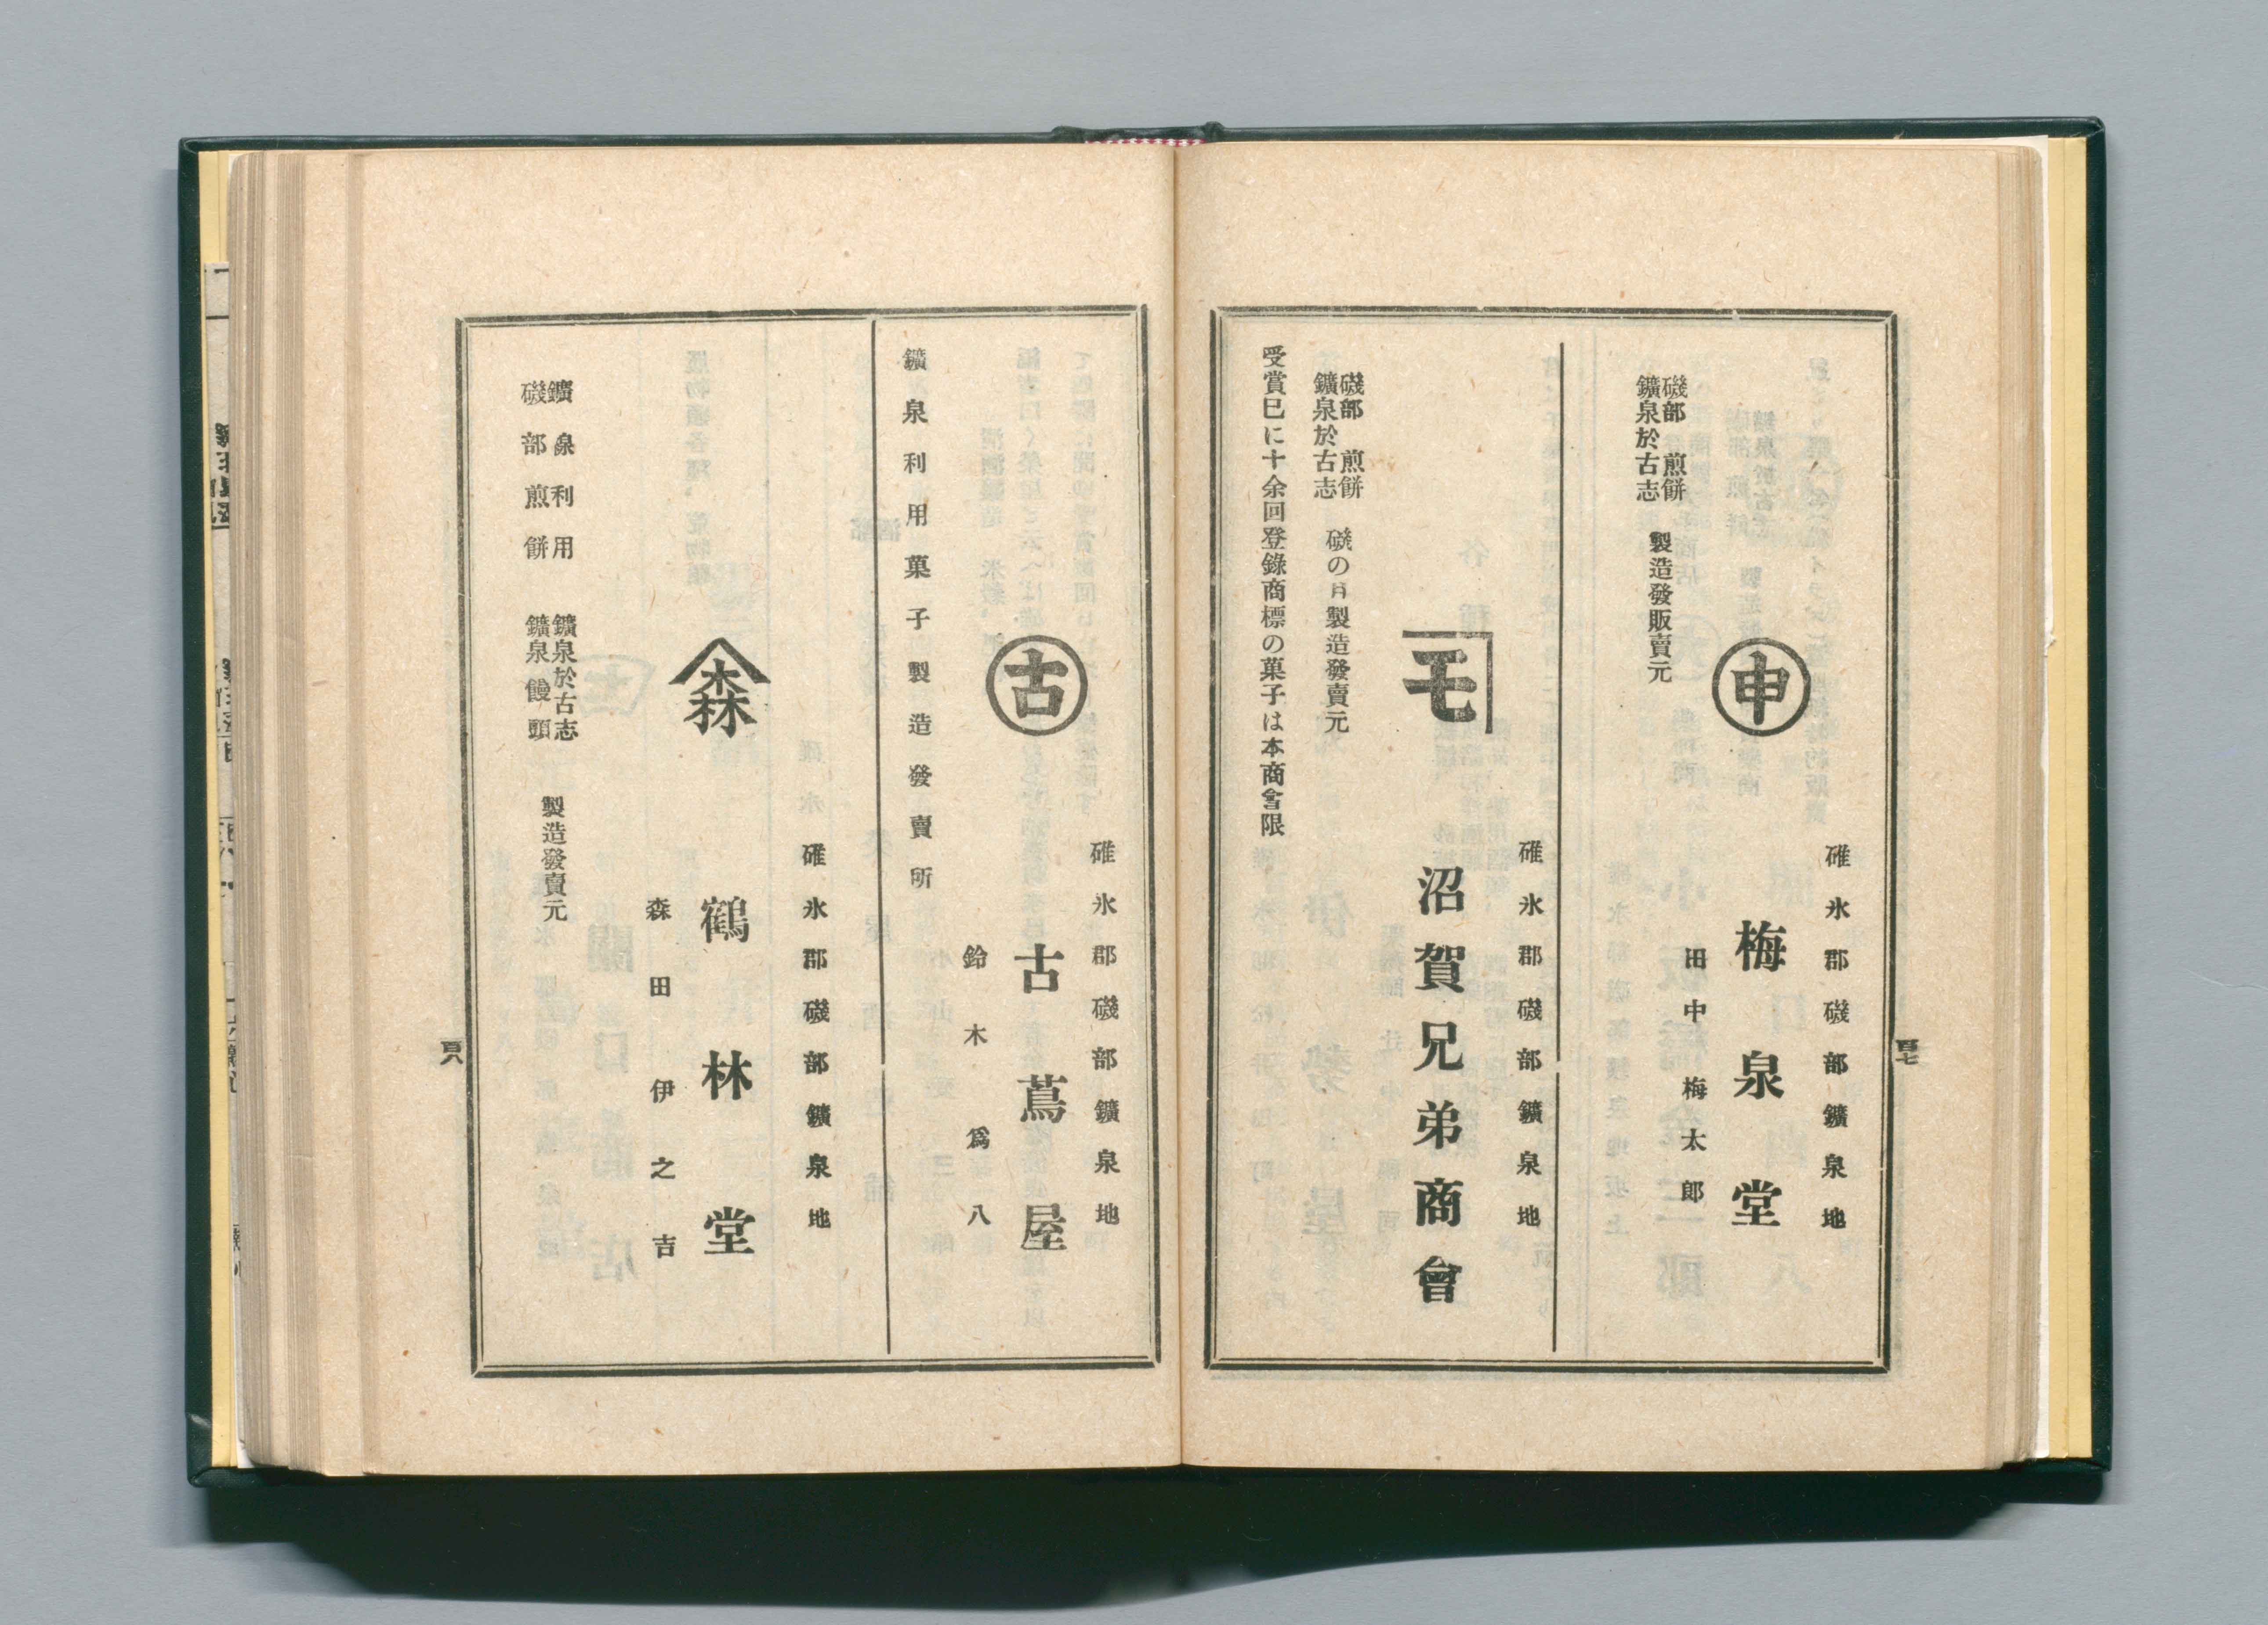 百七
碓氷郡磯部鑛泉地
申
梅泉堂
田中梅太郎
磯部煎餅
鑛泉於古志
製造發販賣元
碓氷郡磯部鑛泉地
モ
沼賀兄弟商會
磯部煎餅
鑛泉於古志
磯の月製造發賣元
受賞已に十余回登錄商標の菓子は本商會限
碓氷郡磯部鑛泉地
古
古蔦屋
鈴木爲八
鑛泉利用菓子製造發賣所
碓氷郡磯部鑛泉地
森
鶴林堂
森田伊之吉
鑛泉利用
磯部煎餅
鑛泉於古志
鑛泉饅頭
製造發賣元
百八